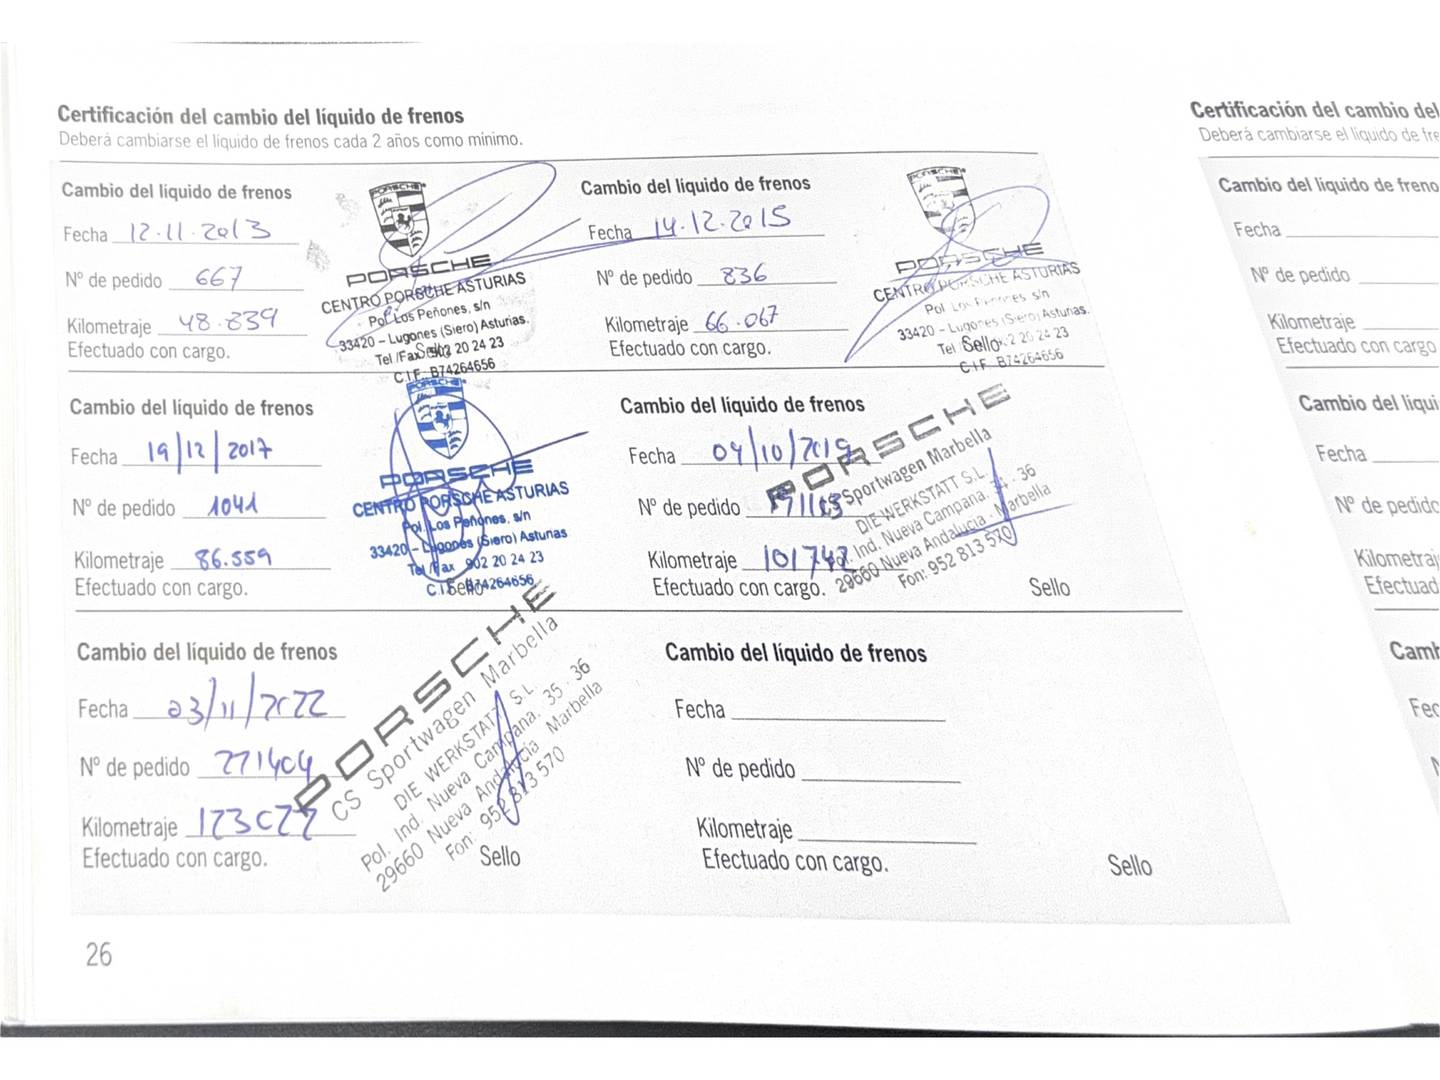 Certificación del cambio del líquido de frenos
Deberá cambiarse el líquido de frenos cada 2 años como mínimo.
Cambio del líquido de frenos
Fecha 12.11.2013
Nº de pedido 667
Kilometraje 48.839
Efectuado con cargo.
PORSCHE
PORSCHE
CENTRO PORSCHE ASTURIAS
Pol. Los Peñones, s/n
33420 – Lugones (Siero) Asturias.
Tel /Fax 902 20 24 23
Sello
C.I.F. B74264656
Cambio del líquido de frenos
Fecha 14.12.2015
Nº de pedido 836
Kilometraje 66.067
Efectuado con cargo.
PORSCHE
PORSCHE
CENTRO PORSCHE ASTURIAS
Pol. Los Peñones, s/n
33420 – Lugones (Siero) Asturias.
Tel 902 20 24 23
Sello
C.I.F. B74264656
Cambio del líquido de frenos
Fecha 19/12/2017
Nº de pedido 1041
Kilometraje 86.559
Efectuado con cargo.
PORSCHE
PORSCHE
CENTRO PORSCHE ASTURIAS
Pol. Los Peñones, s/n
33420 – Lugones (Siero) Asturias
Tel /Fax 902 20 24 23
C.I.F. B74264656
Sello
Cambio del líquido de frenos
Fecha 04/10/2019
Nº de pedido
Kilometraje 101742
Efectuado con cargo.
PORSCHE
CS Sportwagen Marbella
DIE WERKSTATT S.L.
Pol. Ind. Nueva Campana, 36
29660 Nueva Andalucia - Marbella
Fon: 952 813 570
Sello
Cambio del líquido de frenos
Fecha 03/11/2022
Nº de pedido 221404
Kilometraje 123022
Efectuado con cargo.
PORSCHE
CS Sportwagen Marbella
DIE WERKSTATT S.L.
Pol. Ind. Nueva Campana, 35 - 36
29660 Nueva Andalucia Marbella
Fon: 952 813 570
Sello
Cambio del líquido de frenos
Fecha
Nº de pedido
Kilometraje
Efectuado con cargo.
Sello
26
Certificación del cambio del
Deberá cambiarse el líquido de fre
Cambio del líquido de freno
Fecha
Nº de pedido
Kilometraje
Efectuado con cargo
Cambio del líqui
Fecha
Nº de pedido
Kilometraj
Efectuad
Camb
Fec